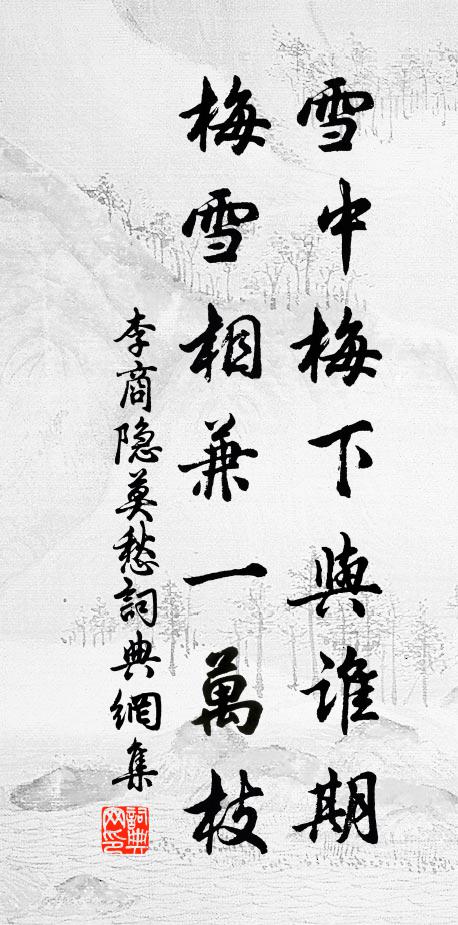 雪中梅下與誰期
梅雪相兼一萬枝
李商隐莫愁詞典網集
詞典網印